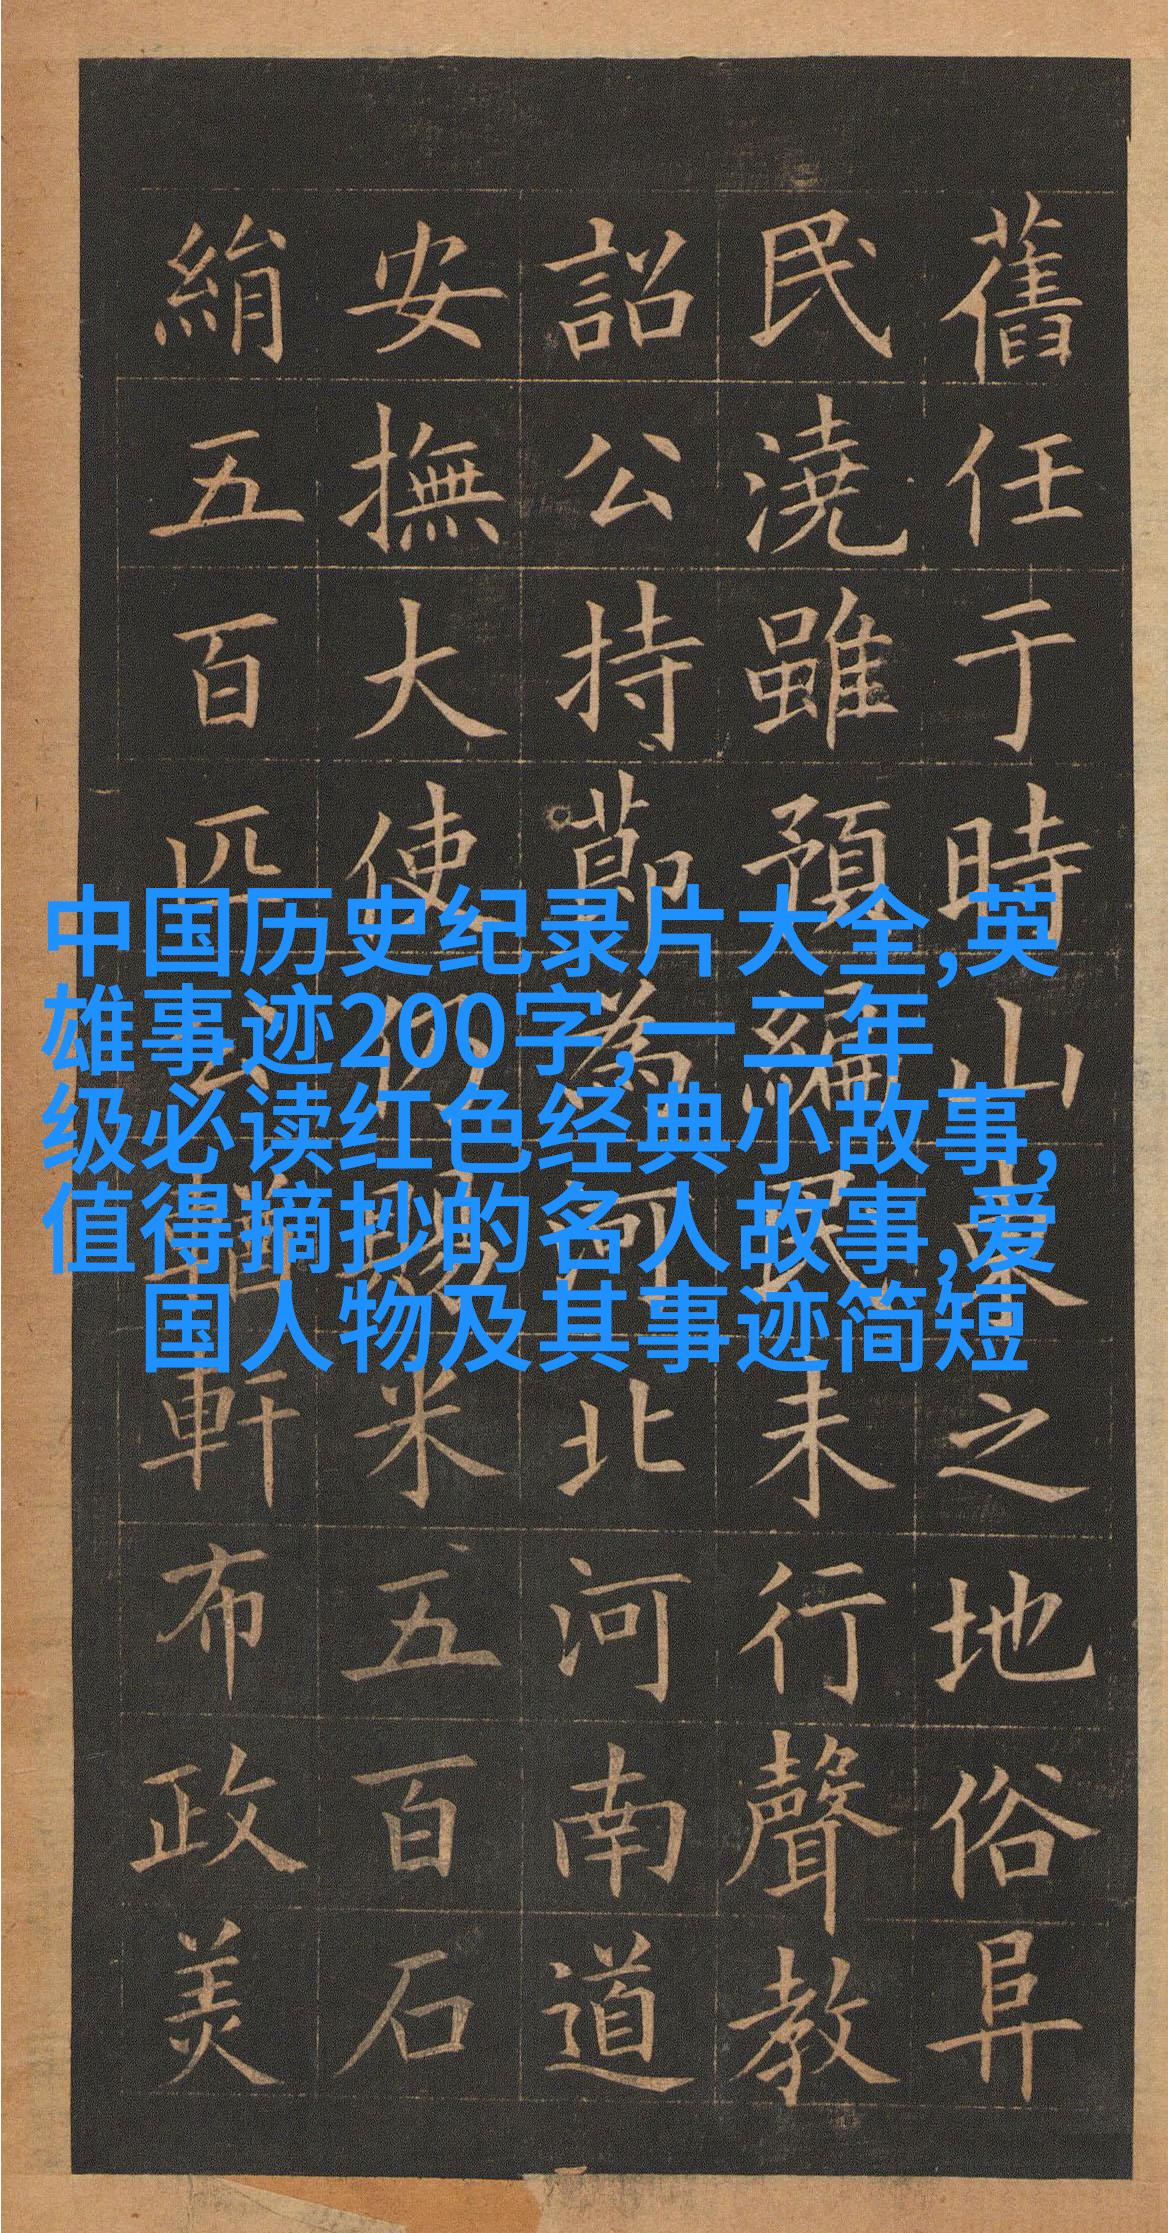 舊任于時山東之地俗阜
民澆雖預編民未行聲教
詔公持節為河北河南道
安撫大使仍賜米五百石
絹五百匹軒布政美
中国历史纪录片大全,英
雄事迹200字,一二年
级必读红色经典小故事,
值得摘抄的名人故事,爱
国人物及其事迹简短